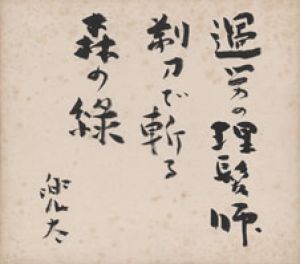 過労の理髪師
剃刀で斬る
森の緑
兜太